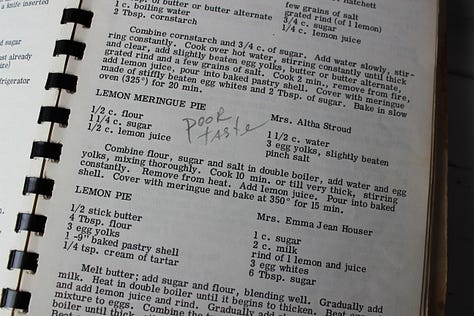 a knife inserted
nd sugar
ast already
ize)
frigerator
of butter or butter alternate
1 c. boiling water
2 Tbsp. cornstarch
Hatchett
few grains of salt
grated rind (of 1 lemon)
3/4 c. sugar
1/4 c. lemon juice
Combine cornstarch and 3/4 c. of sugar. Add water slowly, stir-
ring constantly. Cook over hot water, stirring constantly until thick
and clear, add slightly beaten egg yolks, butter or butter alternate,
grated rind and a few grains of salt. Cook 2 min., remove from fire,
add lemon juice, pour into baked pastry shell. Cover with meringue
made of stiffly beaten egg whites and 2 Tbsp. of sugar. Bake in slow
oven (325°) for 20 min.
LEMON MERINGUE PIE
Mrs. Altha Stroud
POOR
TASTE
1/2 c. flour
1 1/4 c. sugar
1/2 c. lemon juice
1 1/2 c. water
3 egg yolks, slightly beaten
pinch salt
Combine flour, sugar and salt in double boiler, add water and egg
yolks, mixing thoroughly. Cook 10 min. or till very thick, stirring
constantly. Remove from heat. Add lemon juice. Pour into baked
shell. Cover with meringue and bake at 350° for 15 min.
LEMON PIE
Mrs. Emma Jean Houser
1/2 stick butter
4 Tbsp. flour
3 egg yolks
1 -9" baked pastry shell
1/4 tsp. cream of tartar
1 c. sugar
2 c. milk
rind of 1 lemon and juice
3 egg whites
6 Tbsp. sugar
Melt butter; add sugar and flour, blending well. Gradually add
milk. Heat in double boiler until it begins to thicken. Beat
mixture to eggs. Combine the
and add lemon juice and rind. Gradually add
boiler until thick,